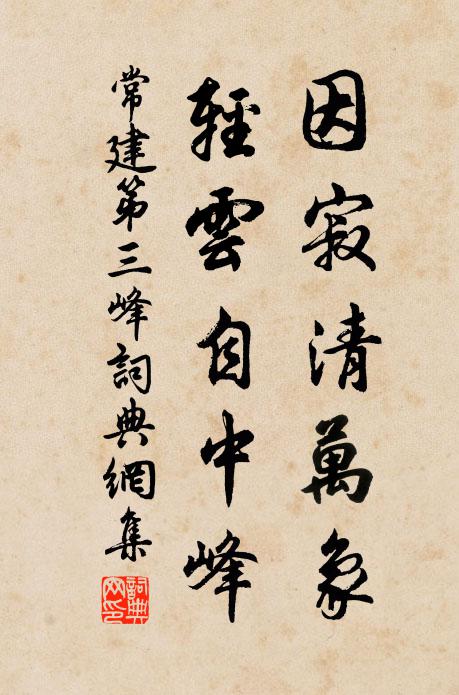 因寂清萬象
輕雲自中峰
常建第三峰詞典網集
詞典網印